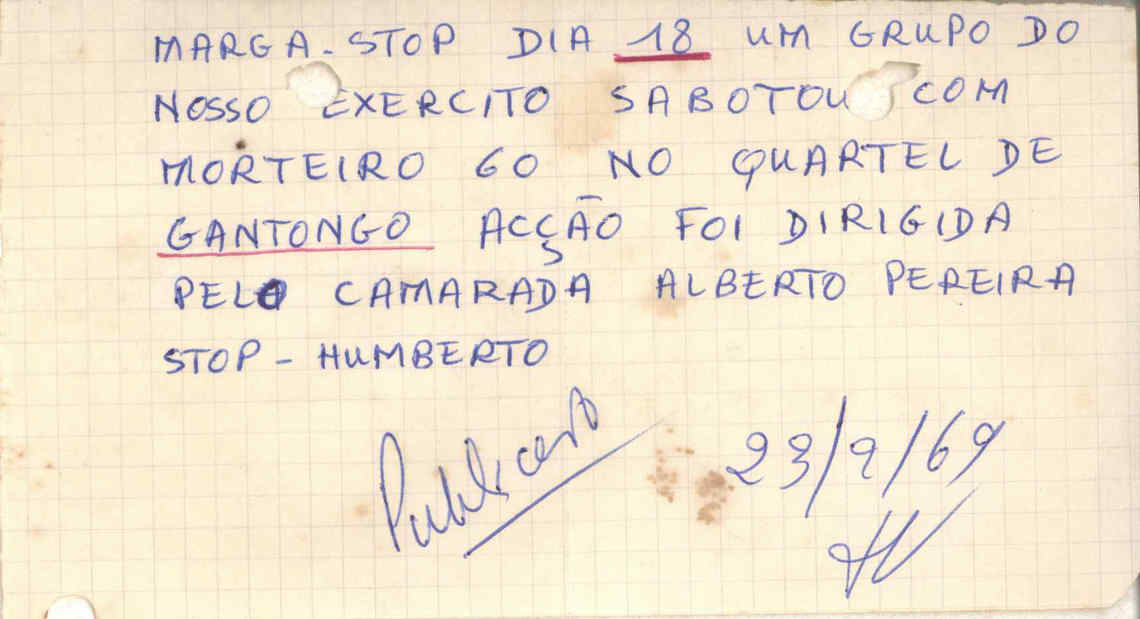 MARGA-STOP DIA 18 UM GRUPO DO
NOSSO EXERCITO SABOTOU COM
MORTEIRO 60 NO QUARTEL DE
GANTONGO ACÇÃO FOI DIRIGIDA
PELO CAMARADA ALBERTO PEREIRA
STOP - HUMBERTO
23/9/69